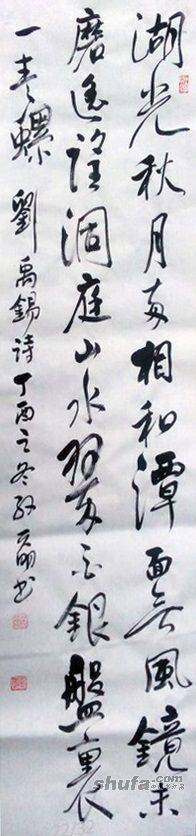 湖光秋月兩相和潭面無風鏡未
磨遙望洞庭山水翠白銀盤裏
一青螺 劉禹錫詩丁酉之冬明书
shufa.com